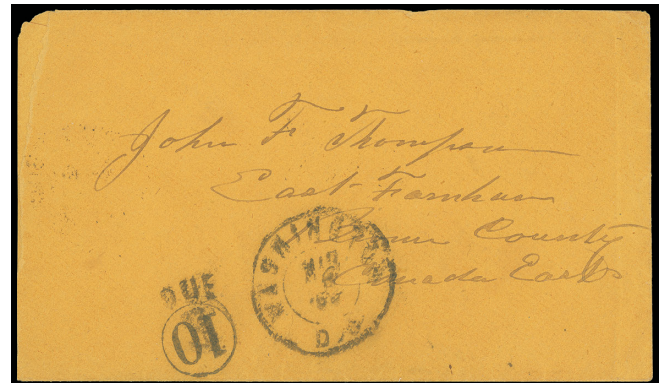 John F Thompson
East Farnham
County
Canada East
WASHINGTON
D.C.
DUE
10